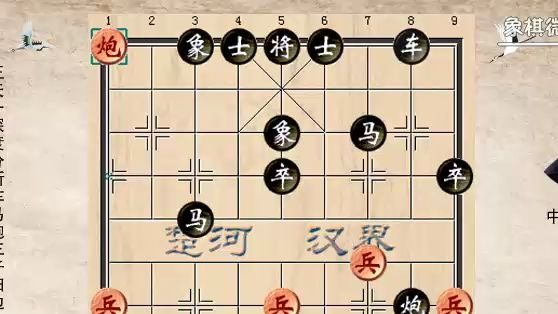 1 2 3 4 5 6 7 8 9
象棋微
炮 象 士 将 士 车
象 马
卒 卒
马
中
楚河 汉界
兵
兵 兵 炮 兵